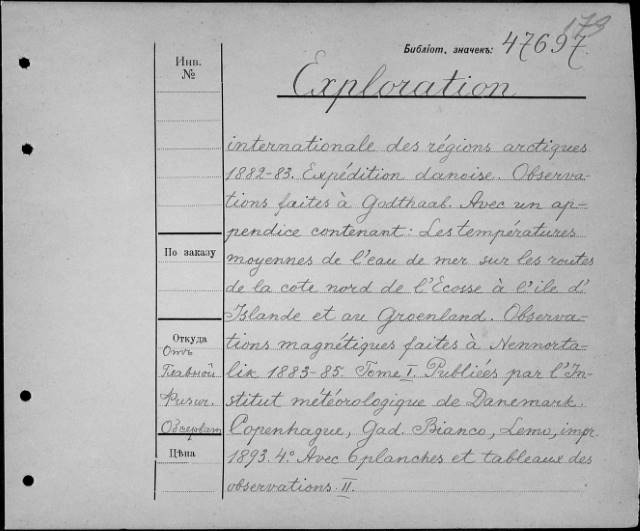 179
Библiот. значекъ: 47697.
Инв.
№
Exploration
internationale des régions arctiques
1882-83. Expédition danoise. Observa-
tions faites à Godthaab. Avec un ap-
pendice contenant: Les températures
moyennes de l'eau de mer sur les routes
de la cote nord de l'Ecosse à l'ile d'
Islande et au Groenland. Observa-
tions magnétiques faites à Nennorta-
lik 1883-85. Tome I. Publiées par l'In-
stitut météorologique de Danemark.
Copenhague, Gad. Bianco, Lemo, impr.
1893. 4° Avec 6 planches et tableaux des
observations. II.
По заказу
Откуда
Отъ
Главной
Физич.
Обсерват
Цѣна